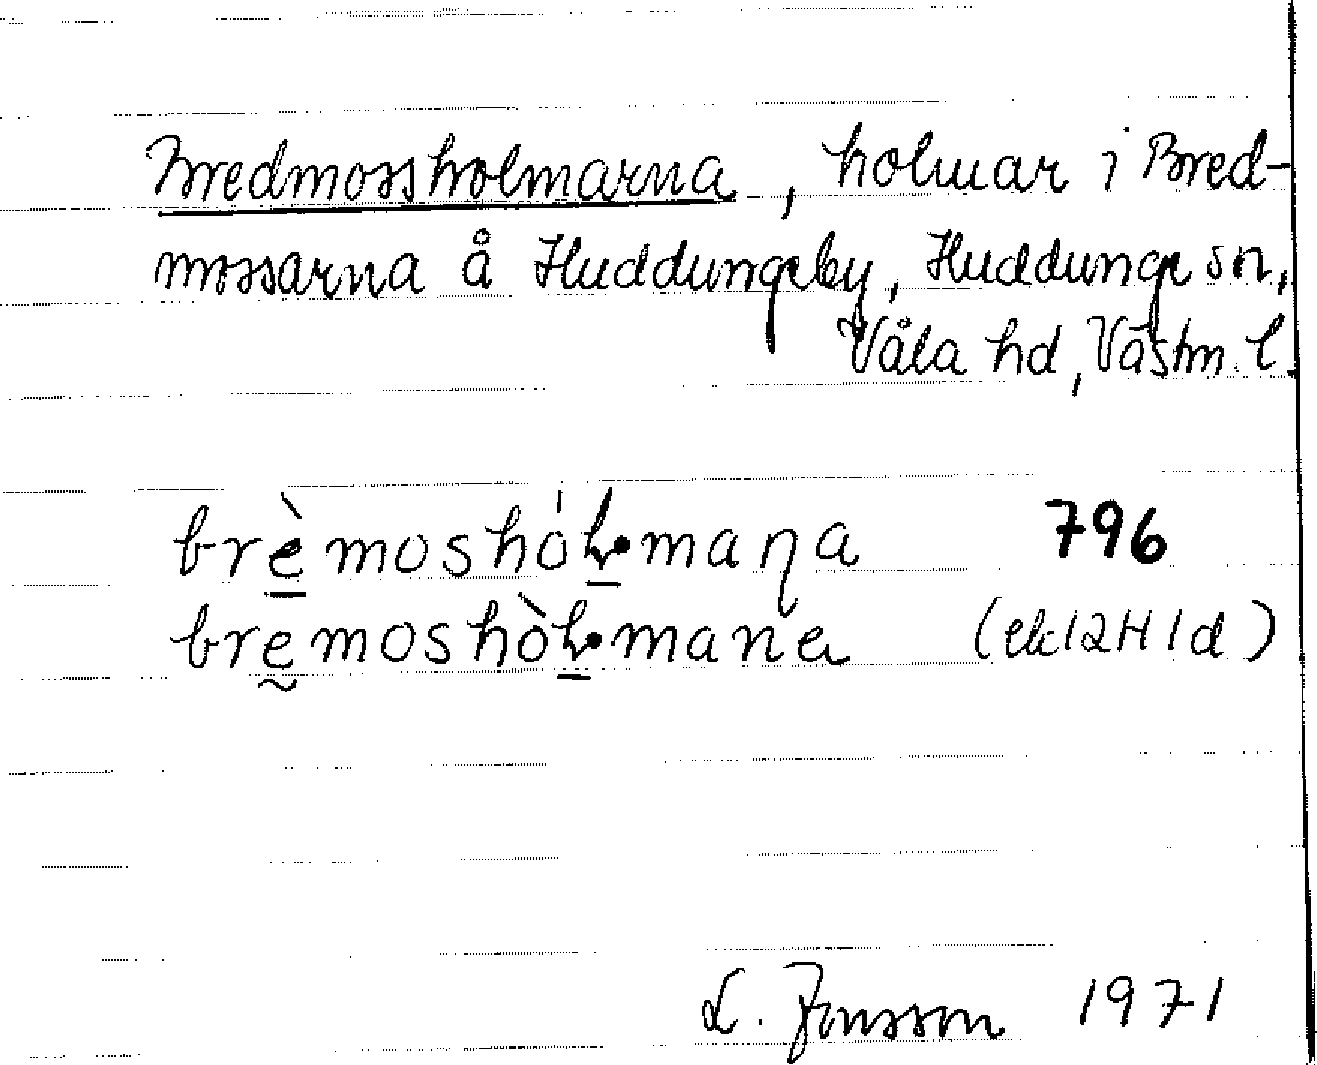 Bredmossholmarna, holmar i Bred-
mossarna å Huddungeby, Huddunge sn,
Våla hd, Västm. l.
brèmoshóɫ•maɳa 796
bremoshòɫ•mana (ek 12H 1d)
L. Jonsson 1971